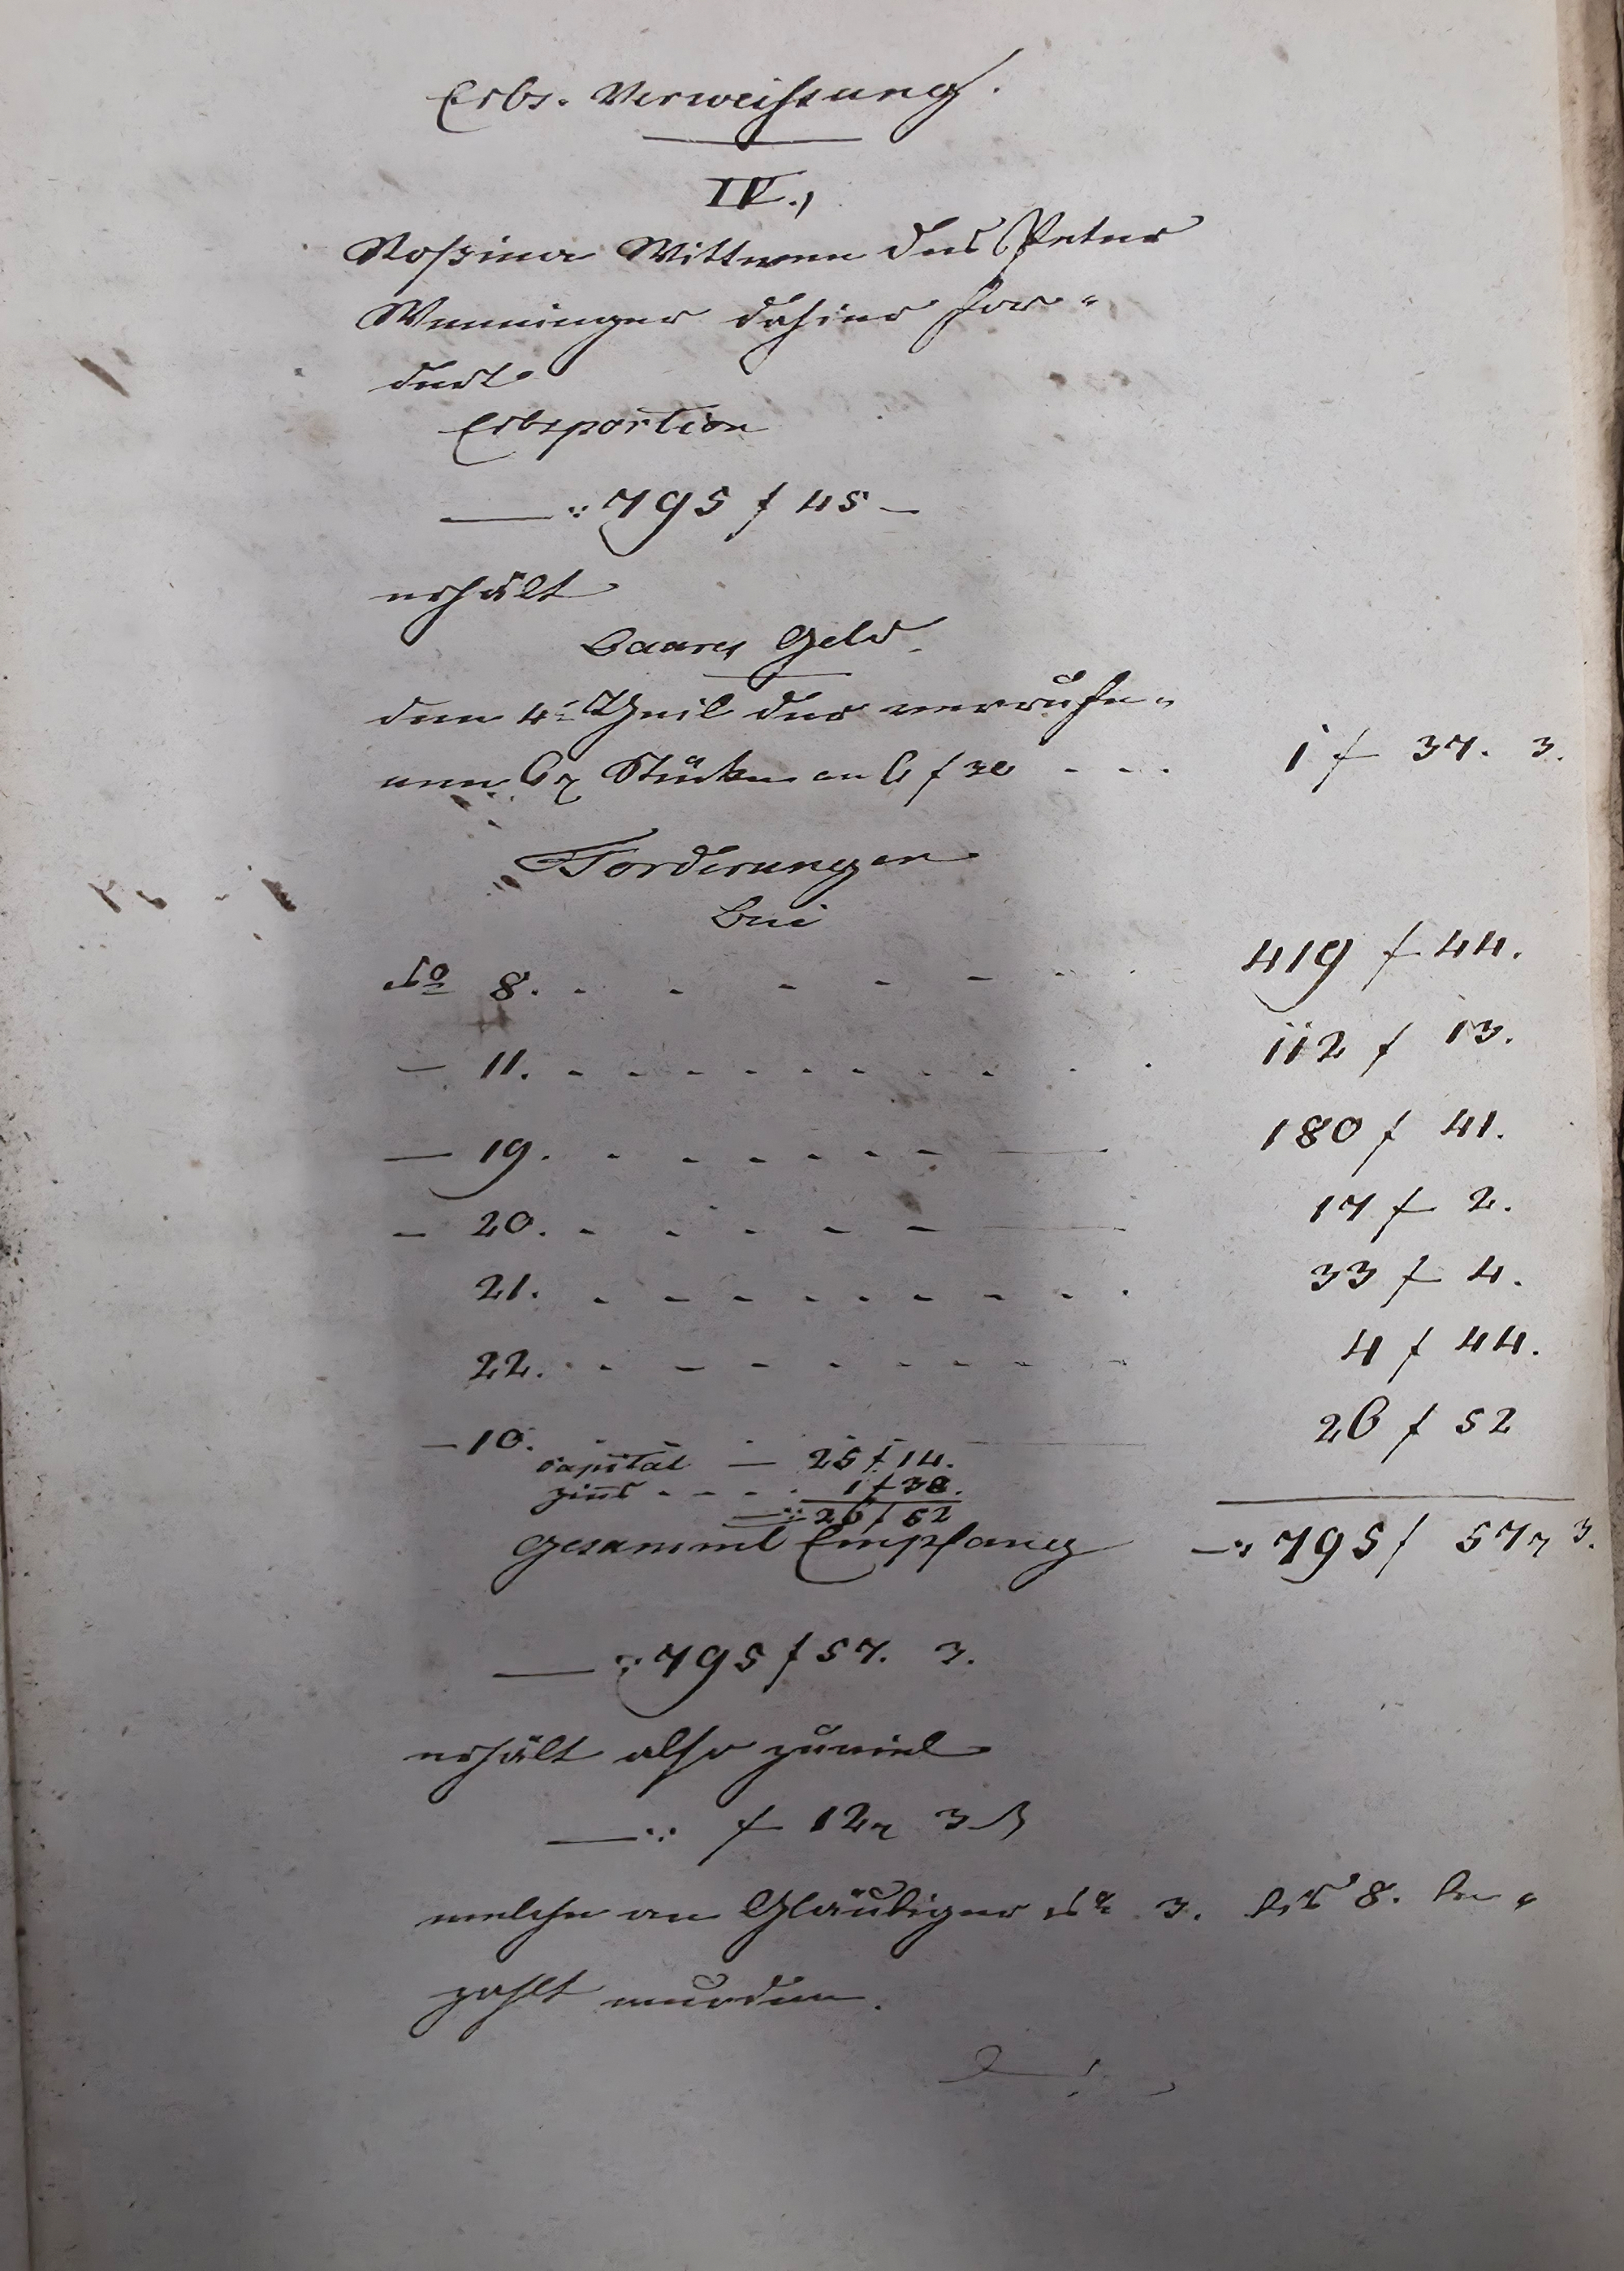 Erbs-Verweisung.
IV.,
Rosina Wittwe des Peter
Wenninger dahier for-
dert
Erbsportion
—:795 f 45 —
erhält
Baares Geld.
den 4t Theil der verrufe-
nen 6 x Stücke an 6 f 30 - - -  1 f 37. 3.
Forderungen
bei
No 8. - - - - - -  419 f 44.
— 11. - - - - - - - -  112 f 13.
— 19. - - - - - - —  180 f 41.
— 20. - - - - - —  17 f 2.
21. - - - - - - - -  33 f 4.
22. - - - - - - - -  4 f 44.
— 10. - - - -  26 f 52
Capital — 25 f 14.
Zins - - - - 1 f 38.
—: 26 f 52
Gesammt Empfang —: 795 f 57 x 3.
—: 795 f 57. 3.
erhält also zuviel
—: f 12 x 3 ₰
welche an Gläubiger No 3. bis 8. be-
zahlt wurden.